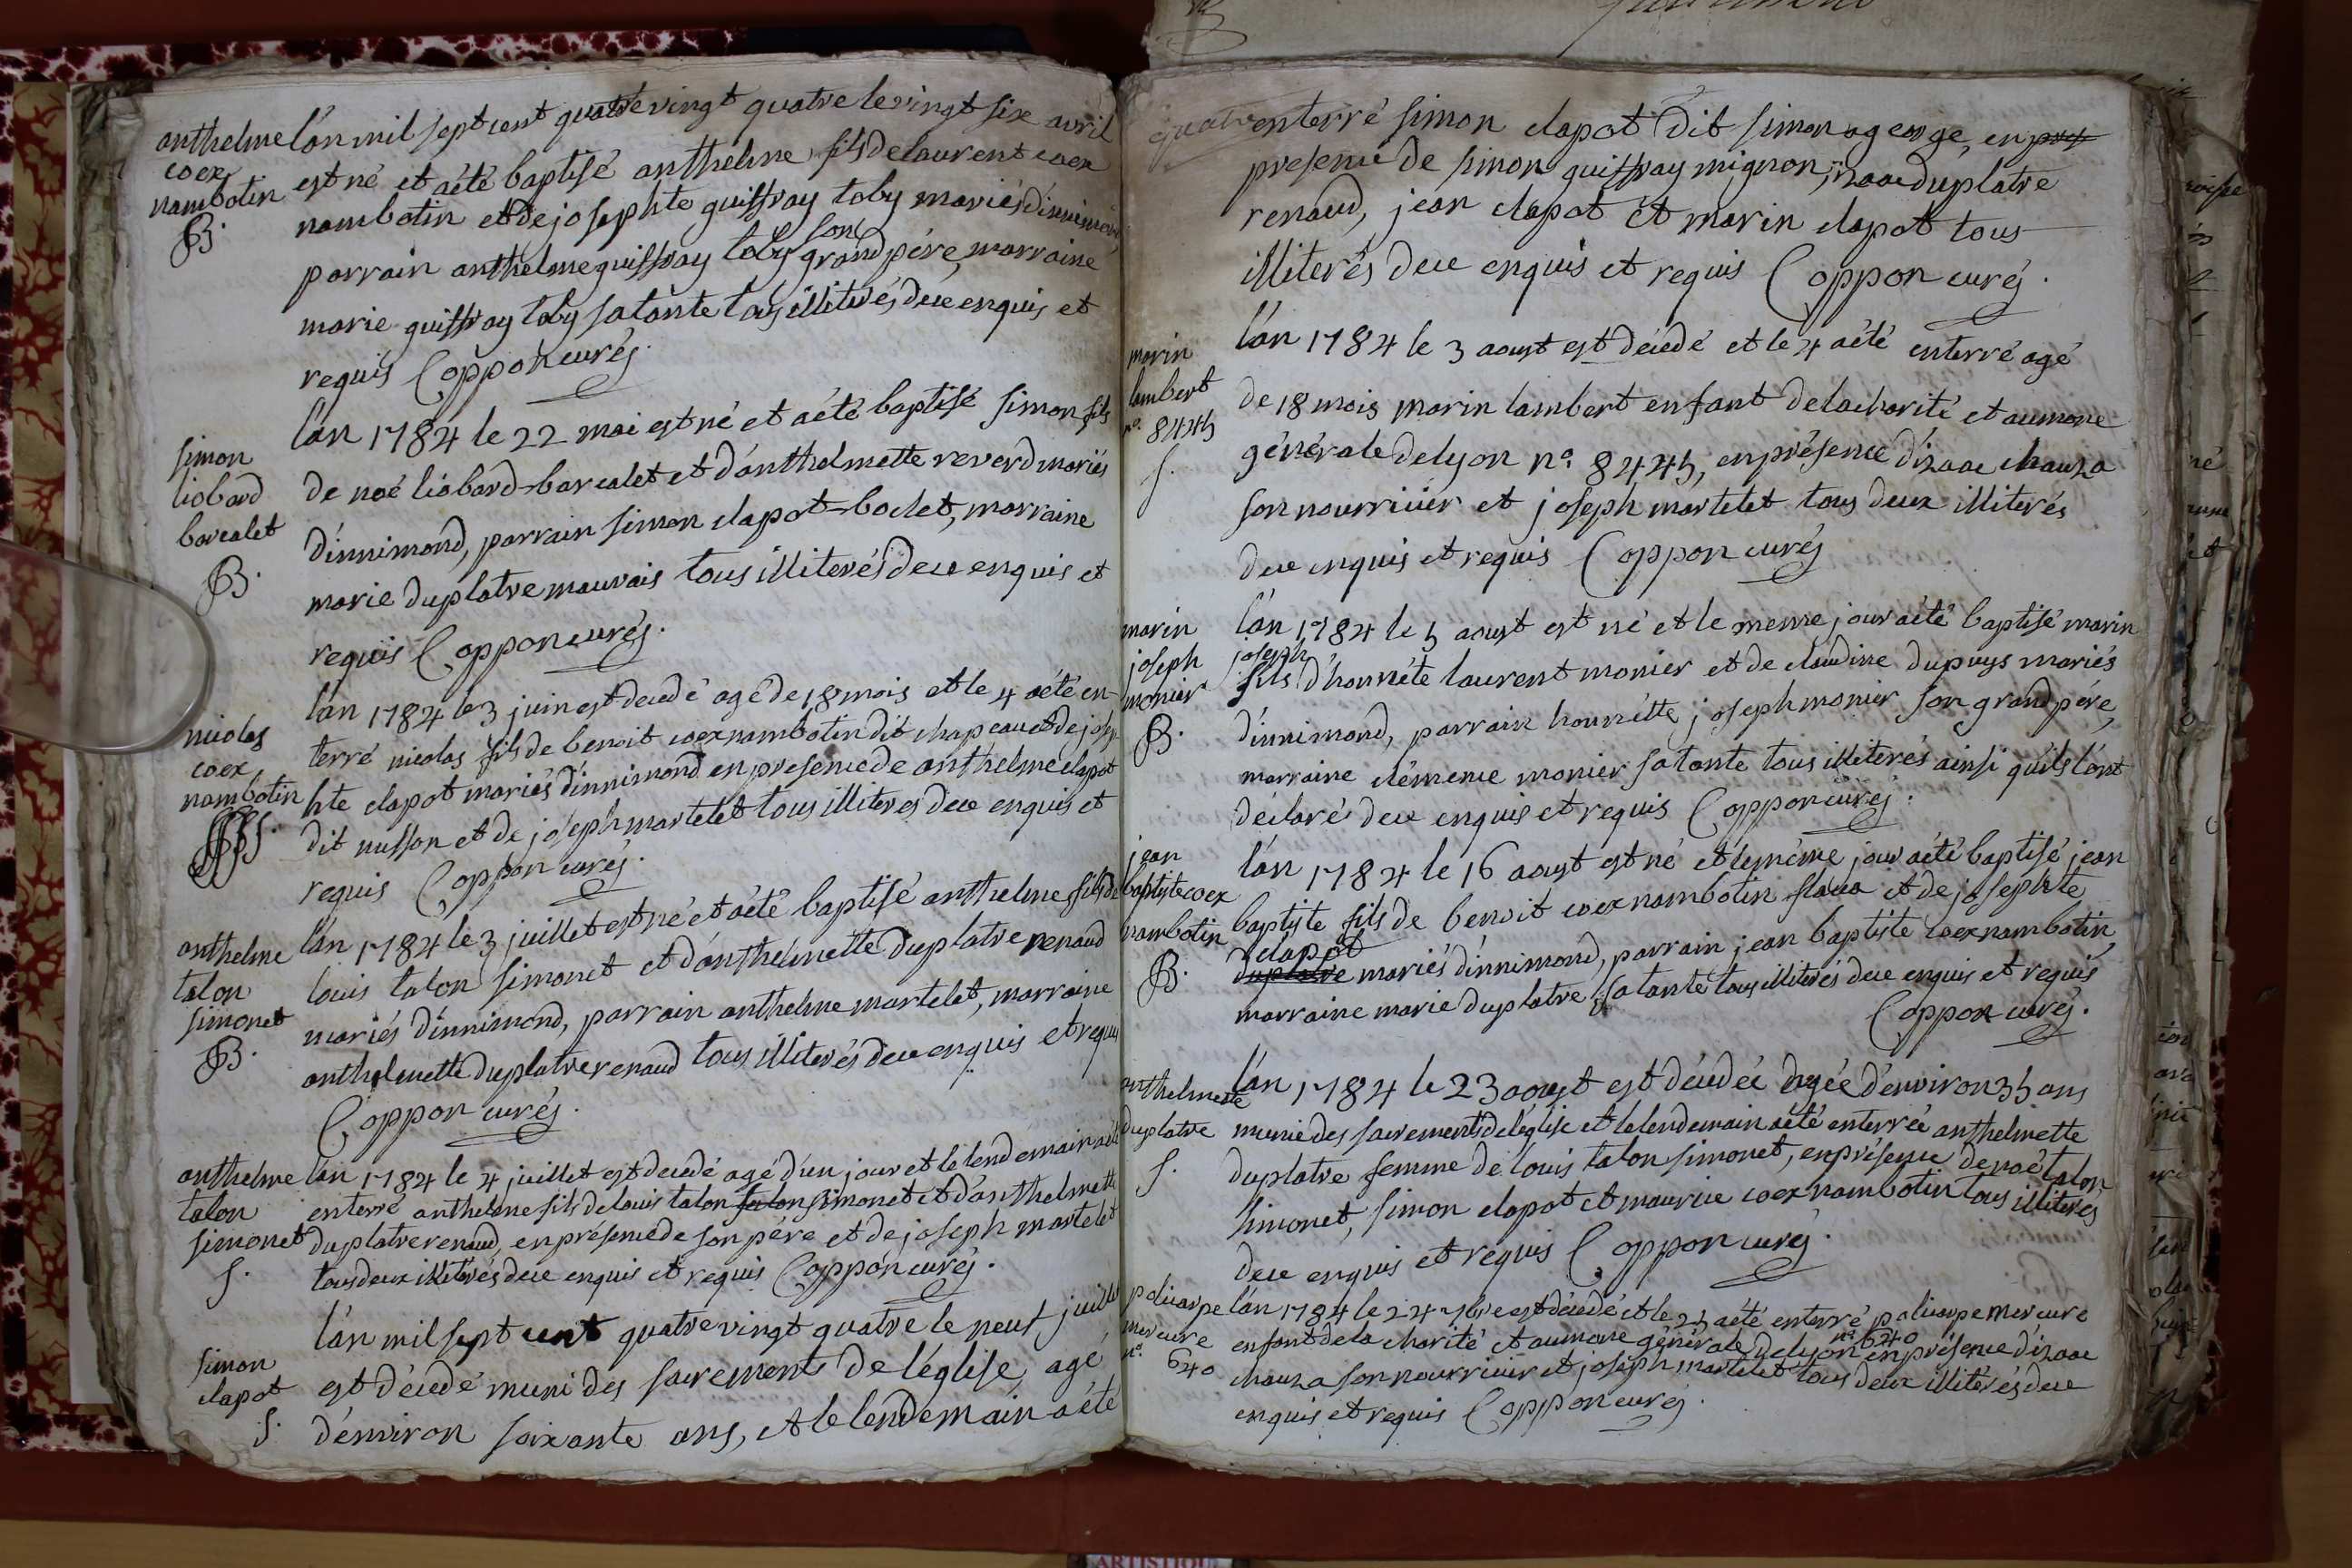 anthelme
coex
nambotin
B.
l'án mil sept cent quatre vingt quatre le vingt six avril
est né et aété baptisé anthelme fils de laurent coex
nambotin et de josephte guiffray toby mariés d'innimond
parrain anthelme guiffray toby son grand pére, marraine
marie guiffray toby sa tánte tous illiterés de ce enquis et
requis Coppon curé.
simon
liobard
barcalet
B.
l'án 1784 le 22 mai est né et aété baptisé simon fils
de noé liobard-barcalet et d'anthelmette reverd mariés
d'innimond, parrain simon clapot-boclet, marraine
marie duplatre mauvais tous illiterés de ce enquis et
requis Coppon curé.
nicolas
coex
nambotin
S.
l'án 1784 le 3 juin est decedé agé de 18 mois et le 4 aété en-
terré nicolas fils de benoit coex nambotin dit chapeau et de josep-
hte clapot mariés d'innimond en presence de anthelme clapot
dit nusson et de joseph martelet tous illiteres de ce enquis et
requis Coppon curé.
anthelme
talon
simonet
B.
l'án 1784 le 3 juillet est né et aété baptisé anthelme fils de
louis talon simonet et d'anthelmette duplatre renaud
mariés d'innimond, parrain anthelme martelet, marraine
anthelmette duplatre renaud tous illiterés de ce enquis et requis
Coppon curé.
anthelme
talon
simonet
S.
l'án 1784 le 4 juillet est decedé agé d'un jour et le lendemain aété
enterré anthelme fils de louis talon simonet et d'anthelmette
duplatre renaud, en présence de son pére et de joseph martelet
tous deux illiterés de ce enquis et requis Coppon curé.
simon
clapot
S.
l'án mil sept cent quatre vingt quatre le neuf juillet
est décedé muni des sacrements de l'église, agé
d'environ soixante ans, et le lendemain aété
enterré simon clapot dit simon george, en
presence de simon guiffray mignon, izaac duplatre
renaud, jean clapot et marin clapot tous
illiterés de ce enquis et requis Coppon curé.
marin
lambert
n°. 8445
S.
l'án 1784 le 3 aoust est décedé et le 4 aété enterré agé
de 18 mois marin lambert enfant de la charité et aumone
générale de lyon n°. 8445, en présence d'izaac chauza
son nourricier et joseph martelet tous deux illiterés
de ce enquis et requis Coppon curé
marin
joseph
monier
B.
l'án 1784 le 5 aoust est né et le meme jour aété baptisé marin
joseph
fils d'honnéte laurent monier et de claudine dupuys mariés
d'innimond, parrain honnétte joseph monier son grand pére,
marraine clémence monier sa tante tous illiterés ainsi qu'ils l'ont
declaré de ce enquis et requis Coppon curé.
jean
baptiste coex
nambotin
B.
l'án 1784 le 16 aoust est né et le méme jour aété baptisé jean
baptiste fils de benoit coex nambotin et de josephte
clapot
duplatre mariés d'innimond, parrain jean baptiste coex nambotin,
marraine marie duplatre sa tante tous illiterés de ce enquis et requis
Coppon curé.
anthelmette
duplatre
S.
l'án 1784 le 23 aoust est décedée agée d'environ 35 ans
munie des sacrements de l'église et le lendemain aété enterrée anthelmette
duplatre femme de louis talon simonet, en présence de noé talon
simonet, simon clapot et maurice coex nambotin tous illiterés
de ce enquis et requis Coppon curé.
policarpe
mercure
n°.
640
l'án 1784 le 24 7bre est décedé et le 25 aété enterré policarpe mercure
enfant de la charité et aumone générale de lyon n°. 640 en présence d'izaac
chauza son nourricier et joseph martelet tous deux illiterés de ce
enquis et requis Coppon curé.